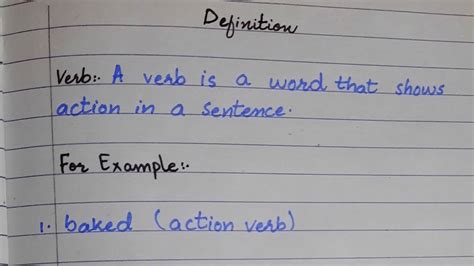 Definition
Verb:- A verb is a word that shows
action in a sentence.
For Example:-
1. baked (action verb)